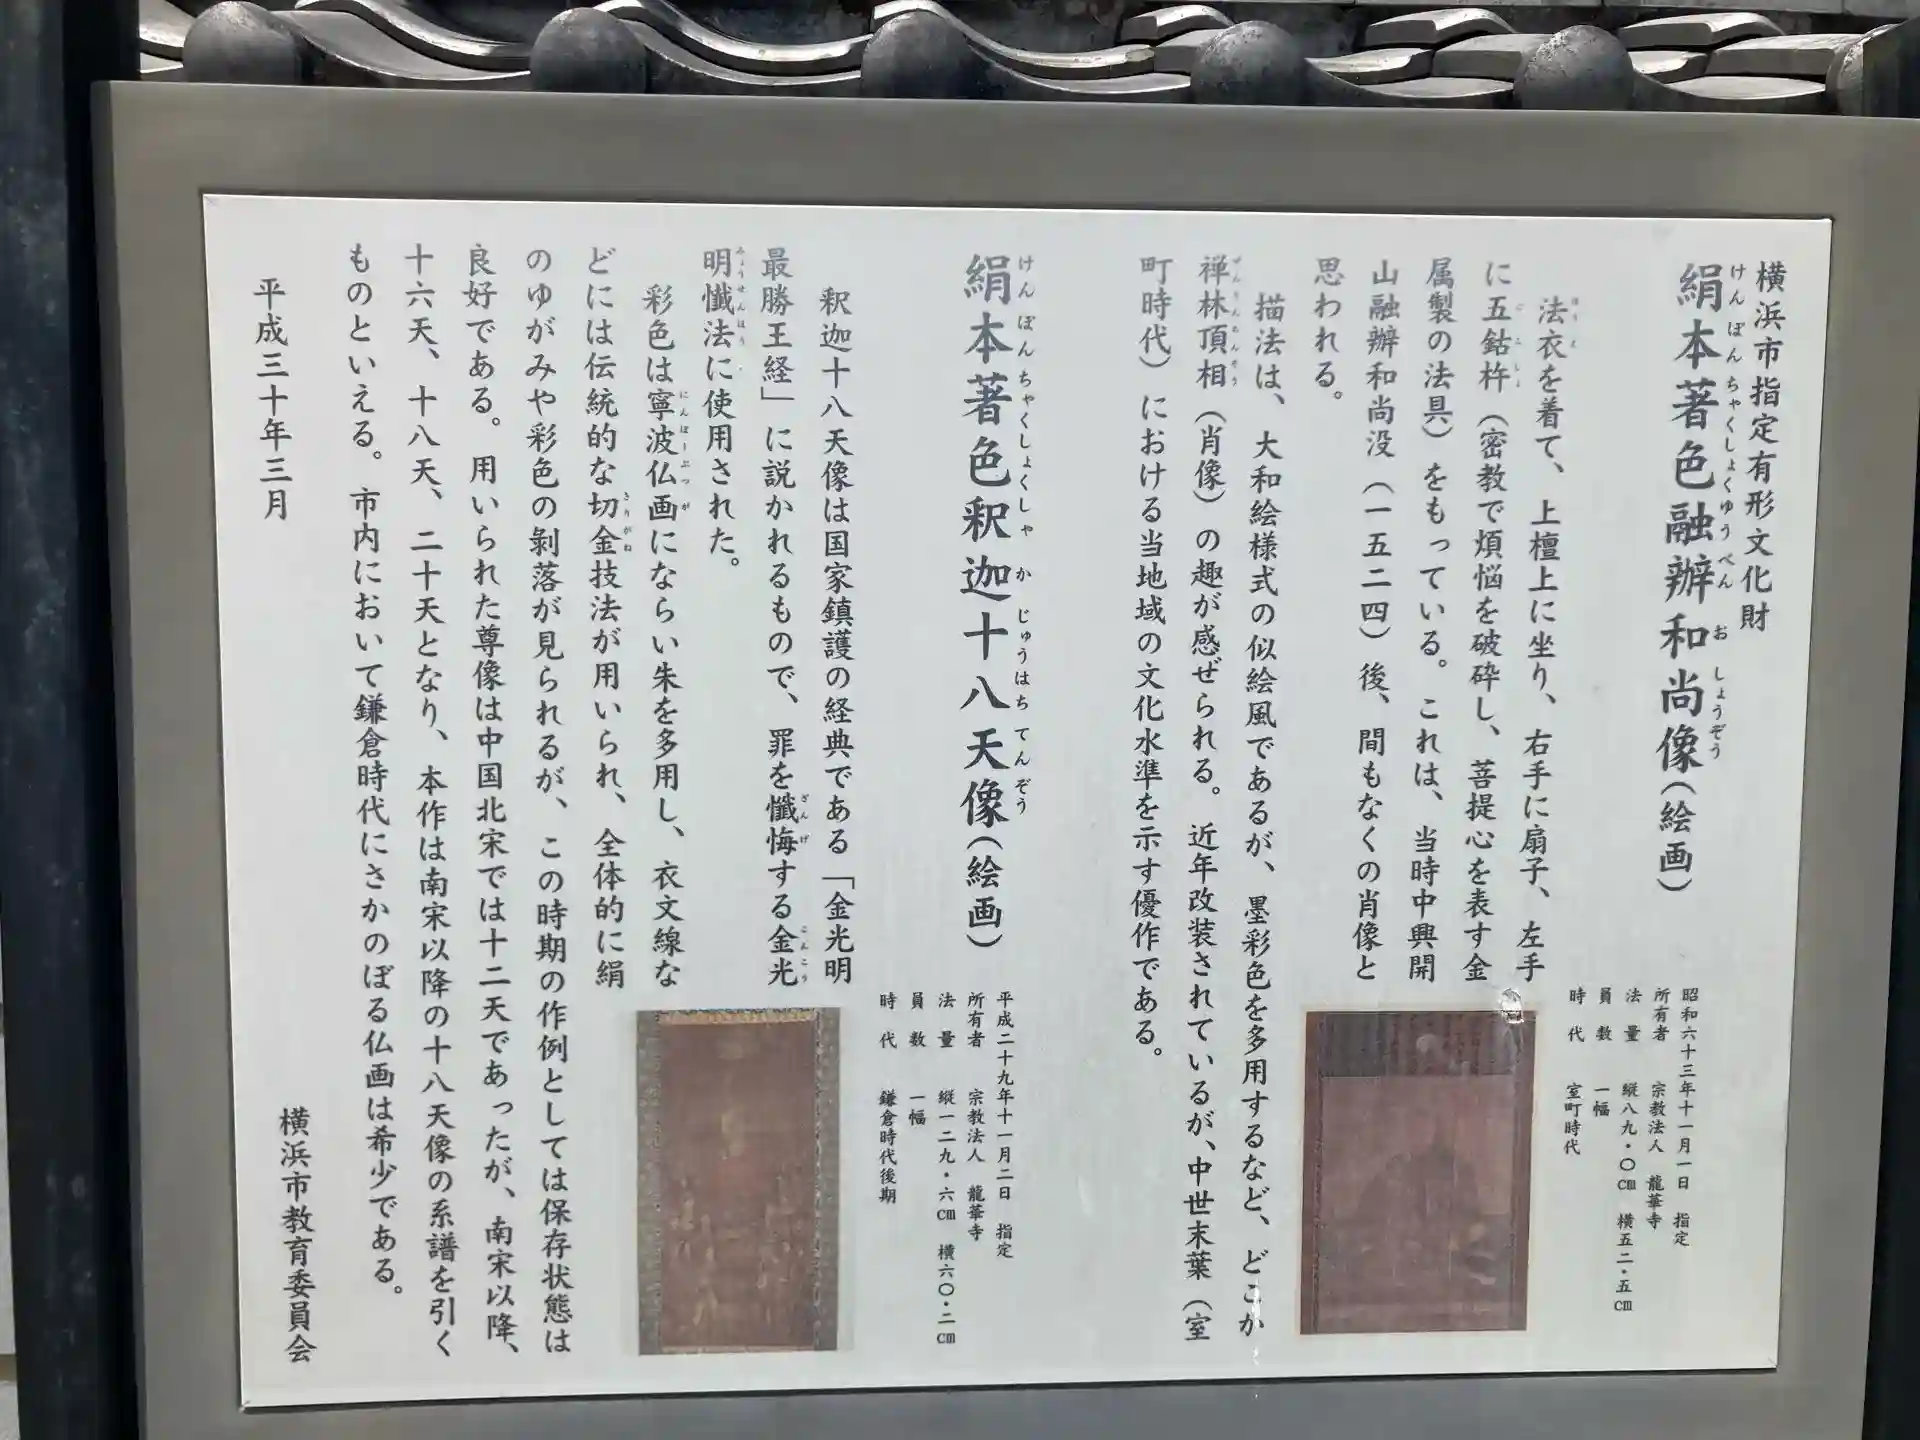 横浜市指定有形文化財
絹本著色融辦和尚像(絵画)
けんぽんちゃくしょくゆうべん お しょうぞう
昭和六十三年十一月一日 指定
所有者 宗教法人 龍華寺
法 量 縦八九・〇㎝ 横五二・五㎝
員 数 一幅
時 代 室町時代
法衣を着て、上檀上に坐り、右手に扇子、左手
ほう え
に五鈷杵(密教で煩悩を破砕し、菩提心を表す金
ご こ しょ
属製の法具)をもっている。これは、当時中興開
山融辦和尚没(一五二四)後、間もなくの肖像と
思われる。
描法は、大和絵様式の似絵風であるが、墨彩色を多用するなど、どこか
禅林頂相(肖像)の趣が感ぜられる。近年改装されているが、中世末葉(室
町時代)における当地域の文化水準を示す優作である。
絹本著色釈迦十八天像(絵画)
けんぽんちゃくしょくしゃ か じゅうはちてんぞう
平成二十九年十一月二日 指定
所有者 宗教法人 龍華寺
法 量 縦一二九・六㎝ 横六〇・二㎝
員 数 一幅
時 代 鎌倉時代後期
釈迦十八天像は国家鎮護の経典である「金光明
最勝王経」に説かれるもので、罪を懺悔する金光
ざん げ こんこう
明懺法に使用された。
みょうせんほう
彩色は寧波仏画にならい朱を多用し、衣文線な
にんぽーぶつ が
どには伝統的な切金技法が用いられ、全体的に絹
きりがね
のゆがみや彩色の剝落が見られるが、この時期の作例としては保存状態は
良好である。用いられた尊像は中国北宋では十二天であったが、南宋以降、
十六天、十八天、二十天となり、本作は南宋以降の十八天像の系譜を引く
ものといえる。市内において鎌倉時代にさかのぼる仏画は希少である。
平成三十年三月
横浜市教育委員会